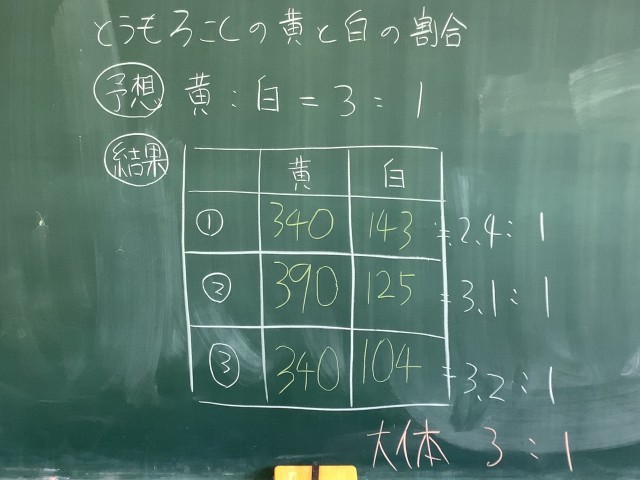 とうもろこしの黄と白の割合
予想 黄:白=3:1
結果
黄 白
① 340 143 ≒2.4:1
② 390 125 ≒3.1:1
③ 340 104 ≒3.2:1
大体 3:1